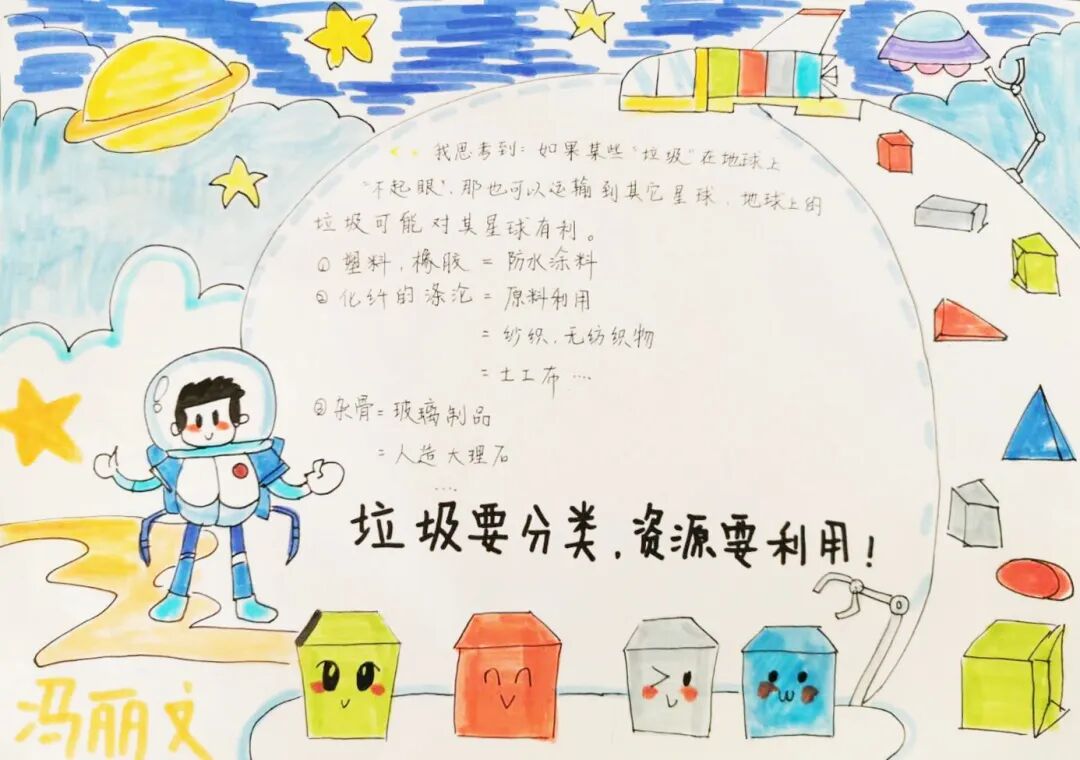 我思考到：如果某些“垃圾”在地球上
“不起眼”，那也可以运输到其它星球，地球上的
垃圾可能对某星球有利。
① 塑料，橡胶 = 防水涂料
② 化纤的涤沦 = 原料利用
= 纱织，无纺织物
= 土工布 …
③ 杂骨 = 玻璃制品
= 人造大理石
…
垃圾要分类，资源要利用！
冯丽文